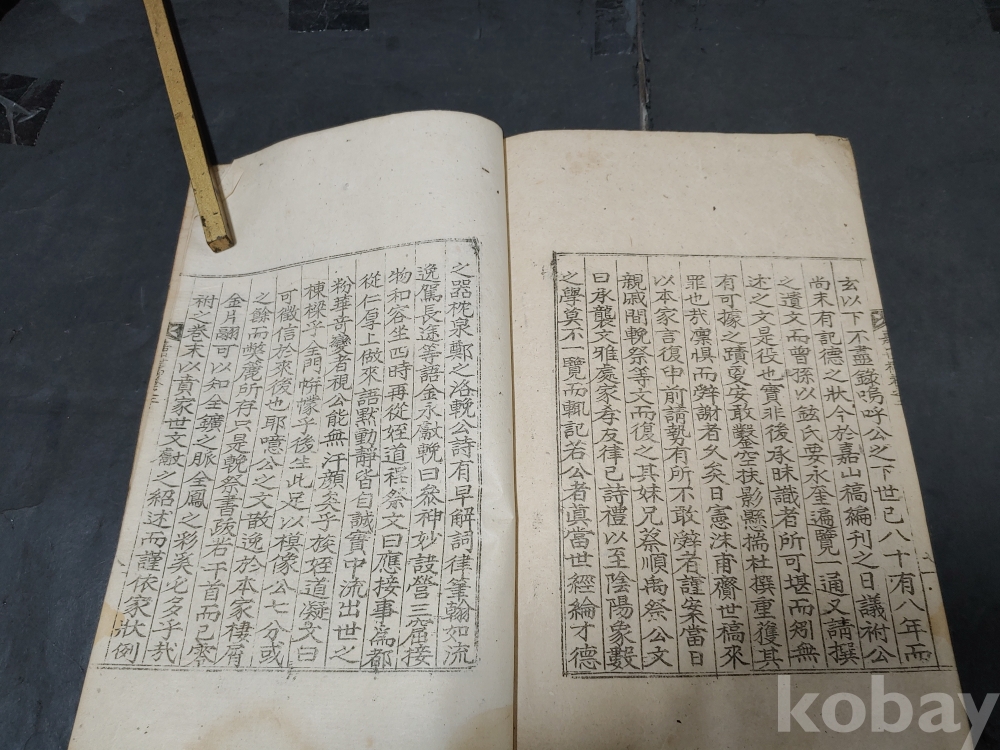 玄以下不盡錄嗚呼公之下世已八十有八年而
尚未有記德之狀今於嘉山稿編刊之日議祔公
之遺文而曾孫以鉉氏要永奎遍覽一通又請撰
述之文是役也實非後承昧識者所可堪而芻無
有可據之蹟安敢鑿空扶影懸揣杜撰重獲其
罪也哉凜惧而辭謝者久矣日憲洙甫齎世稿來
以本家言復申前請勢有所不敢辭者謹案當日
親戚間輓祭等文而復之其妹兄蔡順禹祭公文
曰承襲文雅處家孝友律己詩禮以至陰陽象數
之學莫不一覽而輒記若公者眞當世經綸才德
之器枕泉鄭之洛輓公詩有早解詞律筆翰如流
逸駕長途等語金永獻輓曰發神妙設營三窟接
物和容坐四時再從姪道 祭文曰應接事爲都
從仁厚上做來語默動靜皆自誠實中流出世之
粉華奇變者視公能無汗顔矣乎族姪道凝文曰
棟樑乎全門帡幪乎後生此足以模像公七分或
可徵信於來後也耶噫公之文散逸於本家棲屑
之餘而弊麓所存只是輓祭書疏若干首而已零
金片翮可以知全鑛之脉全鳳之彩奚必多乎哉
祔之卷末以責家世文獻之紹述而謹依家狀例
kobay